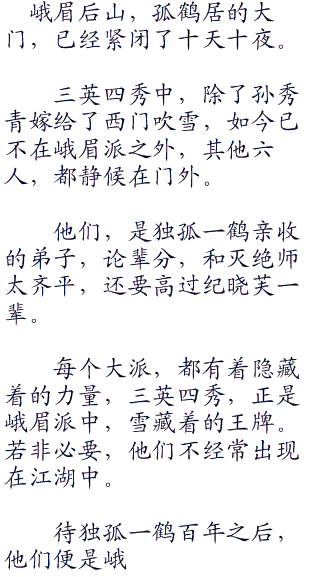 峨眉后山，孤鹤居的大
门，已经紧闭了十天十夜。
三英四秀中，除了孙秀
青嫁给了西门吹雪，如今已
不在峨眉派之外，其他六
人，都静候在门外。
他们，是独孤一鹤亲收
的弟子，论辈分，和灭绝师
太齐平，还要高过纪晓芙一
辈。
每个大派，都有着隐藏
着的力量，三英四秀，正是
峨眉派中，雪藏着的王牌。
若非必要，他们不经常出现
在江湖中。
待独孤一鹤百年之后，
他们便是峨